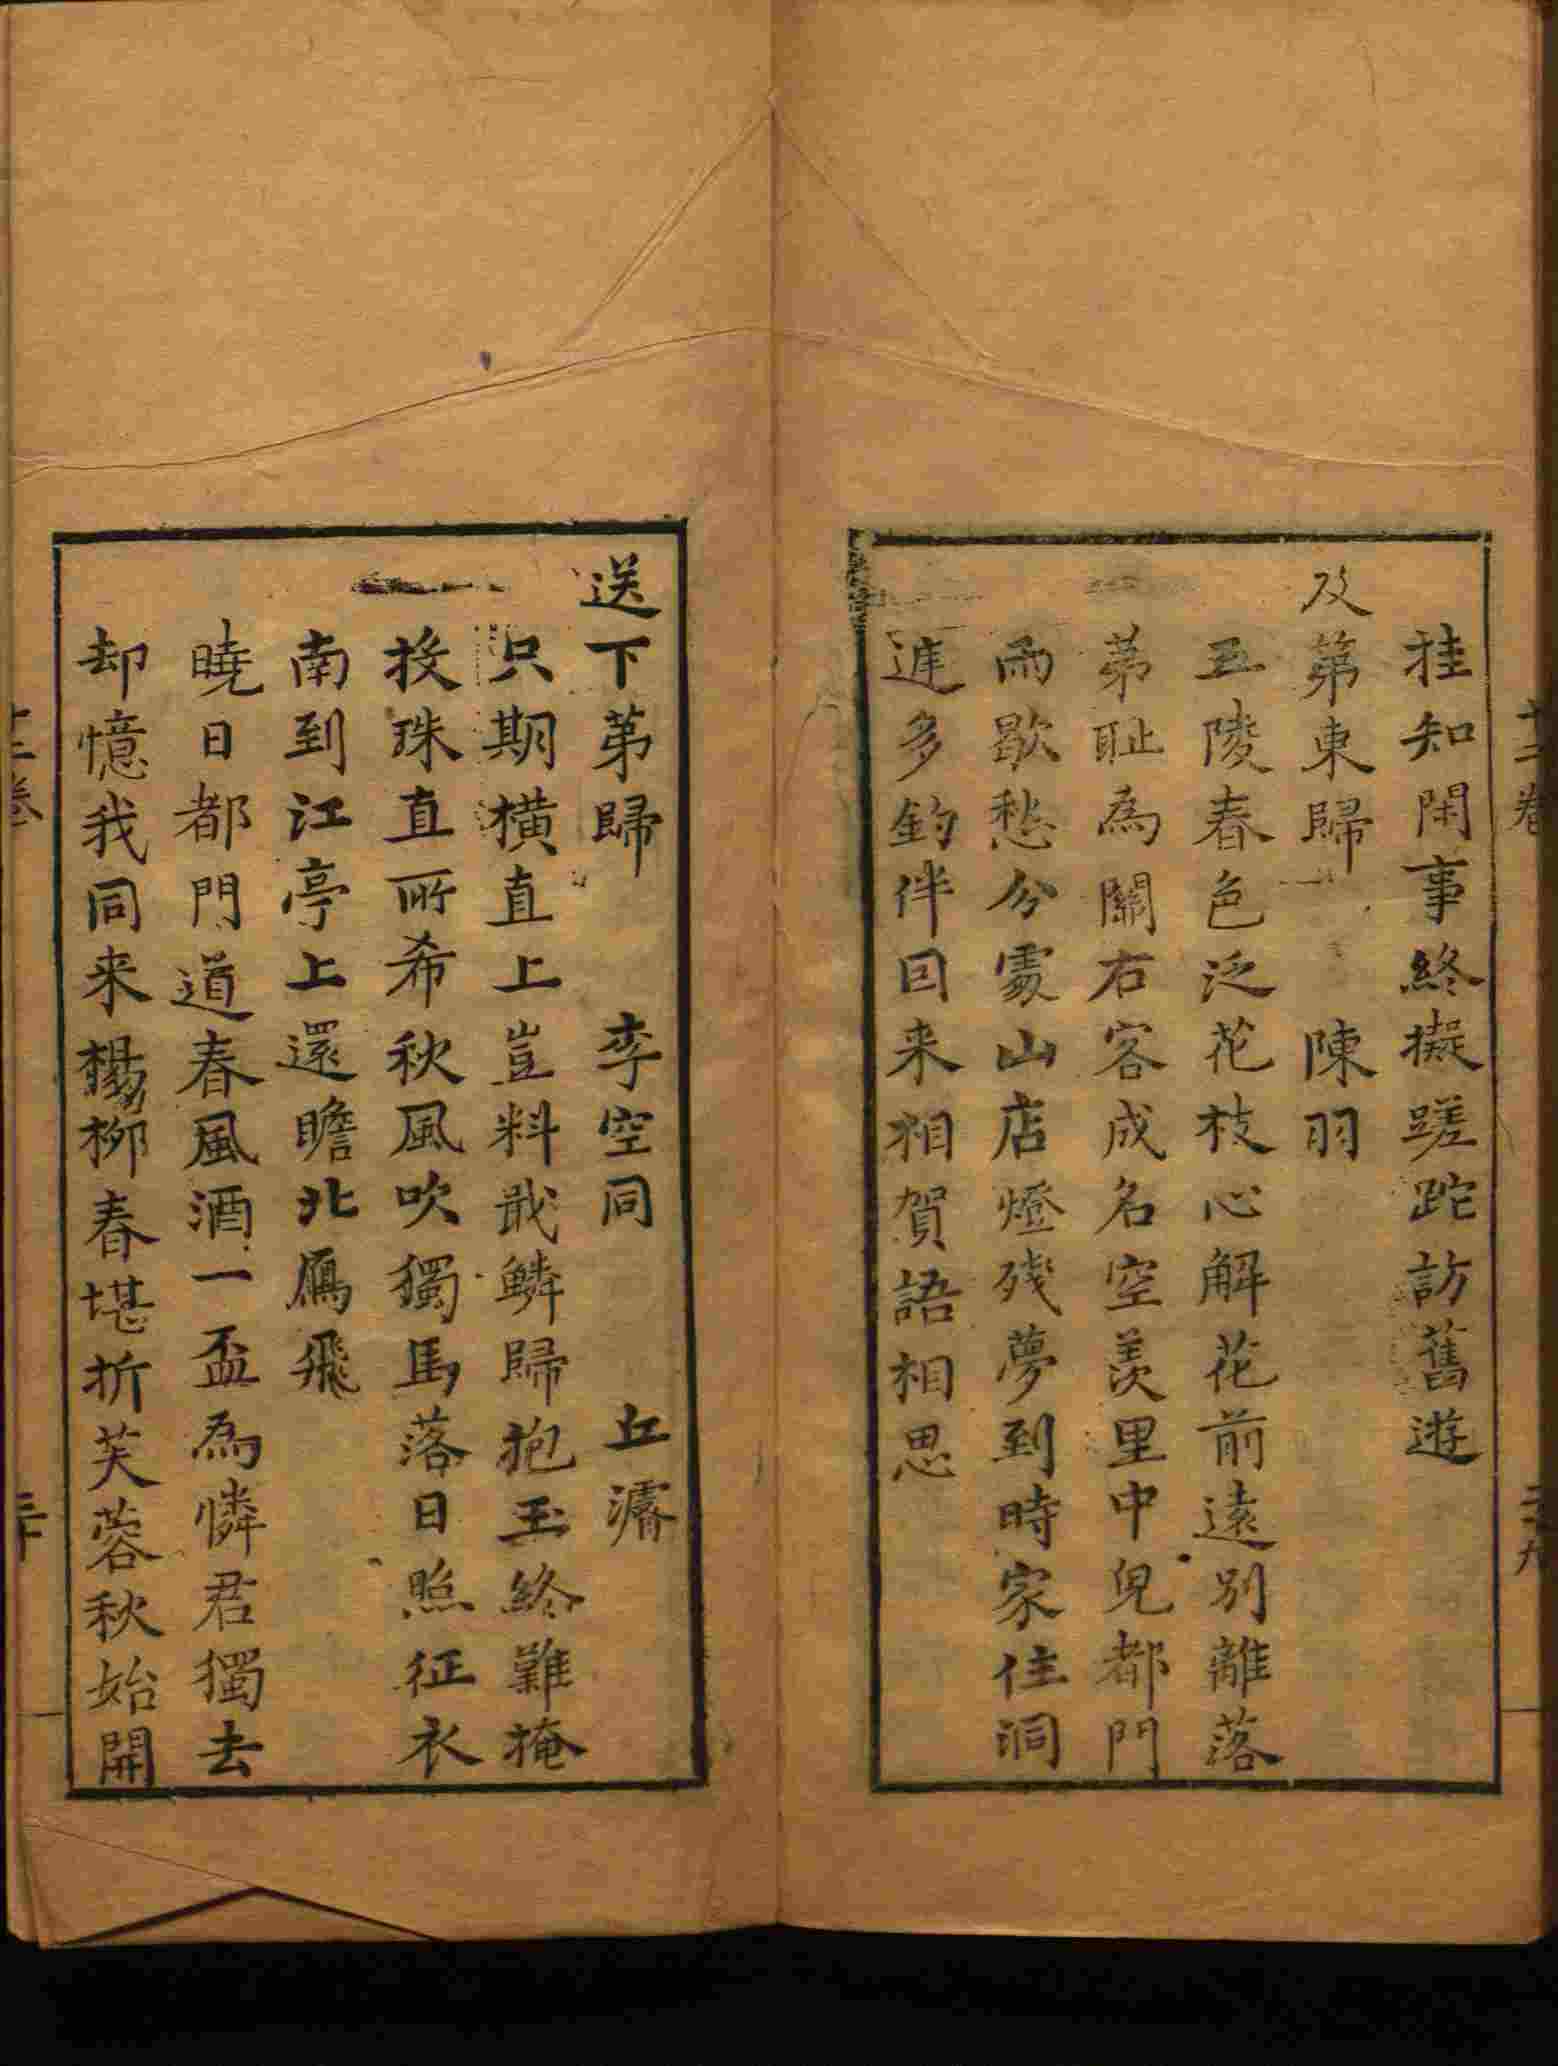 挂知閑事終擬蹉跎訪舊遊
及第東歸 陳羽
五陵春色泛花枝心解花前遠別離落
苐耻為關右客成名空羨里中兒都門
雨歇愁分處山店燈殘夢到時家住洞
庭多釣伴囙来相賀語相思
送下苐歸 李空同 丘濬
只期橫直上豈料戢鱗歸抱玉終難掩
投珠直所希秋風吹獨馬落日照征衣
南到江亭上還瞻北鴈飛
曉日都門道春風酒一盃為憐君獨去
却憶我同来楊柳春堪折芙蓉秋始開
十二卷
三十
十二卷
二十九